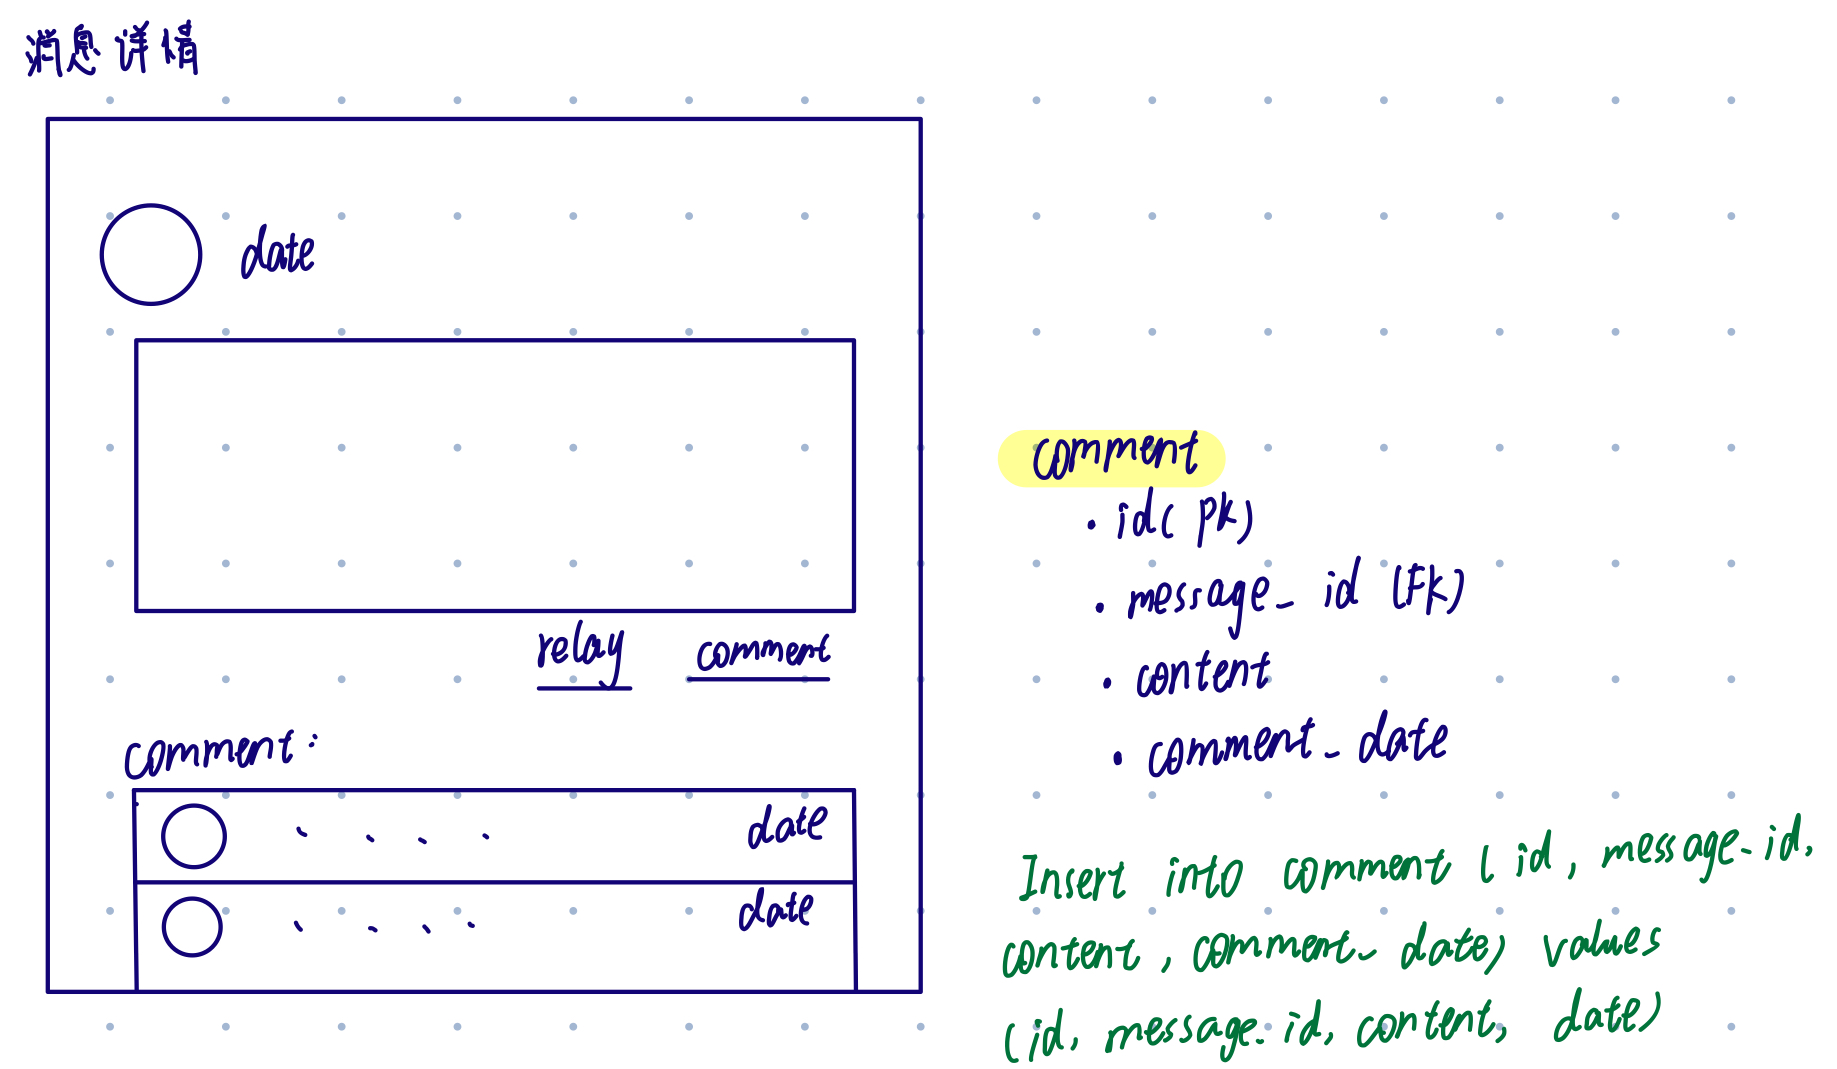 消息详情
date
relay comment
comment:
date
date
comment
· id( PK)
· message_ id (FK)
· content
· comment_ date
Insert into comment ( id, message_id,
content, comment_ date) values
(id, message_id, content, date)